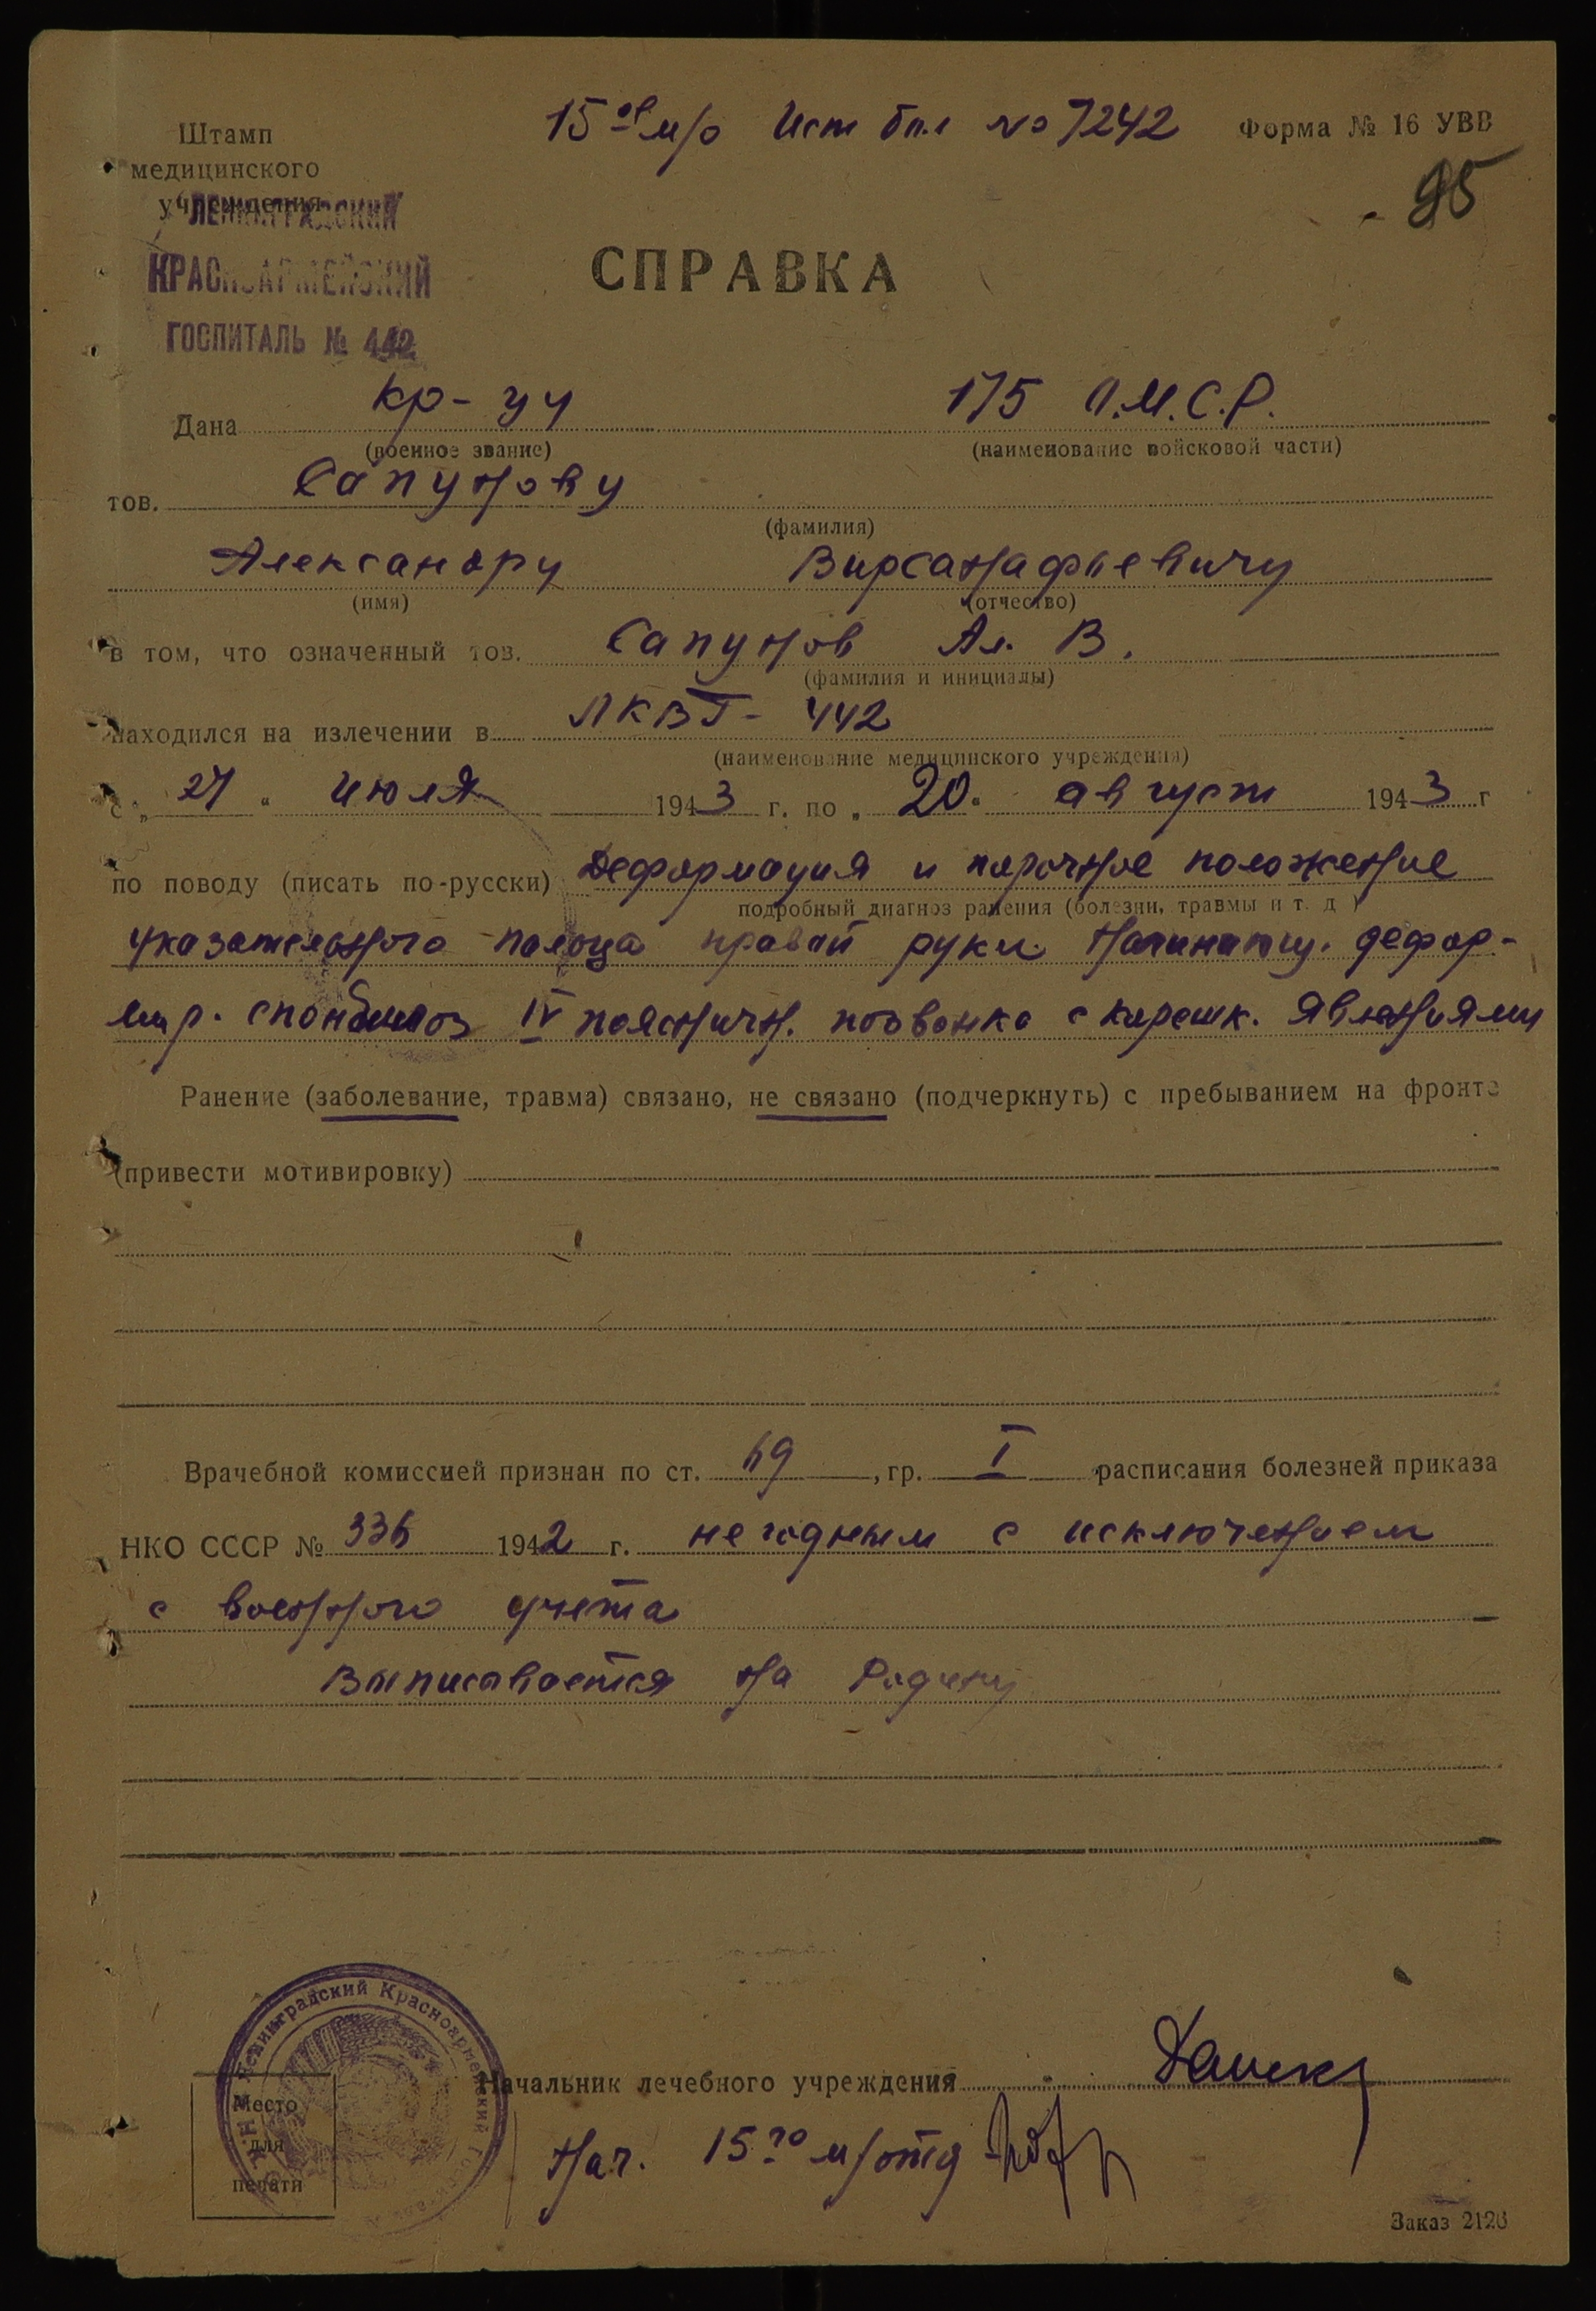 15ое м/о Ист бол № 7242 Форма № 16 УВВ
Штамп
медицинского
учреждения
95
ЛЕНИНГРАДСКИЙ
КРАСНОАРМЕЙСКИЙ
ГОСПИТАЛЬ № 442
СПРАВКА
Дана кр-цу 175 О.М.С.Р.
(военное звание) (наименование войсковой части)
тов. Сапунову
(фамилия)
Александру Вирсанафьевичу
(имя) (отчество)
в том, что означенный тов. Сапунов Ал. В.
(фамилия и инициалы)
находился на излечении в ЛКВГ- 442
(наименование медицинского учреждения)
с „ 27 " июля 1943 г. по „ 20 " август 1943 г
по поводу (писать по-русски) Деформация и порочное положение
подробный диагноз ранения (болезни, травмы и т. д )
указательного пальца правой руки. дефор-
мир. спондилоз IV пояснич. позвонка с корешк. явлениями
Ранение (заболевание, травма) связано, не связано (подчеркнуть) с пребыванием на фронте
(привести мотивировку)
Врачебной комиссией признан по ст. 69, гр. I расписания болезней приказа
НКО СССР № 336 1942 г. негодным с исключением
с военного учета
Выписывается на Родину
Ленинградский Красноармейский Госпиталь
Место
для
печати
Начальник лечебного учреждения
Нач. 15го м/отд
Заказ 2126